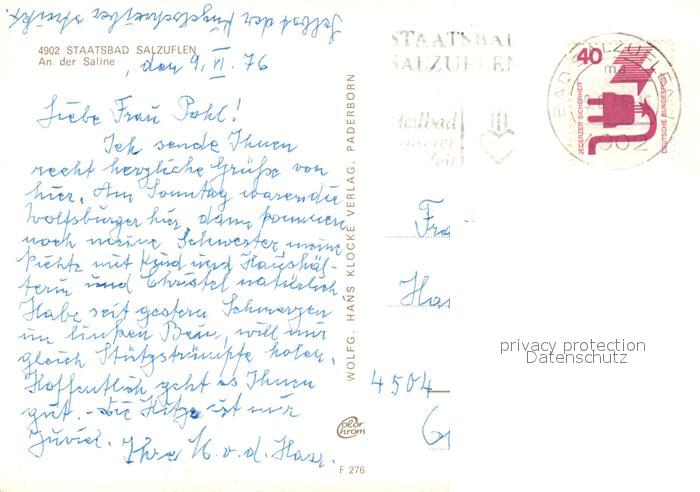 Selbst der Kugelschreiber streikt.
4902 STAATSBAD SALZUFLEN
An der Saline
, den 9. VI. 76
Liebe Frau Pohl!
Ich sende Ihnen
recht herzliche Grüße von
hier. Am Sonntag waren die
Wolfsburger hier, dann kommen
noch meine Schwester meine
Nichte mit Kind und Haushäl-
terin und Christel natürlich.
Habe seit gestern Schmerzen
im linken Bein, will mir
gleich Stützstrümpfe holen.
Hoffentlich geht es Ihnen
gut. - Die Hitze ist mir
zuviel. Ihre M. v. d. Haar.
WOLFG. HANS KLOCKE VERLAG, PADERBORN
color
chrom
F 276
STAATSBAD
SALZUFLEN
Heilbad
unserer
Zeit
BAD SALZUFLEN
ma
4902
40
JEDERZEIT SICHERHEIT
DEUTSCHE BUNDESPOST
Fra
Has
4504
G
privacy protection
Datenschutz